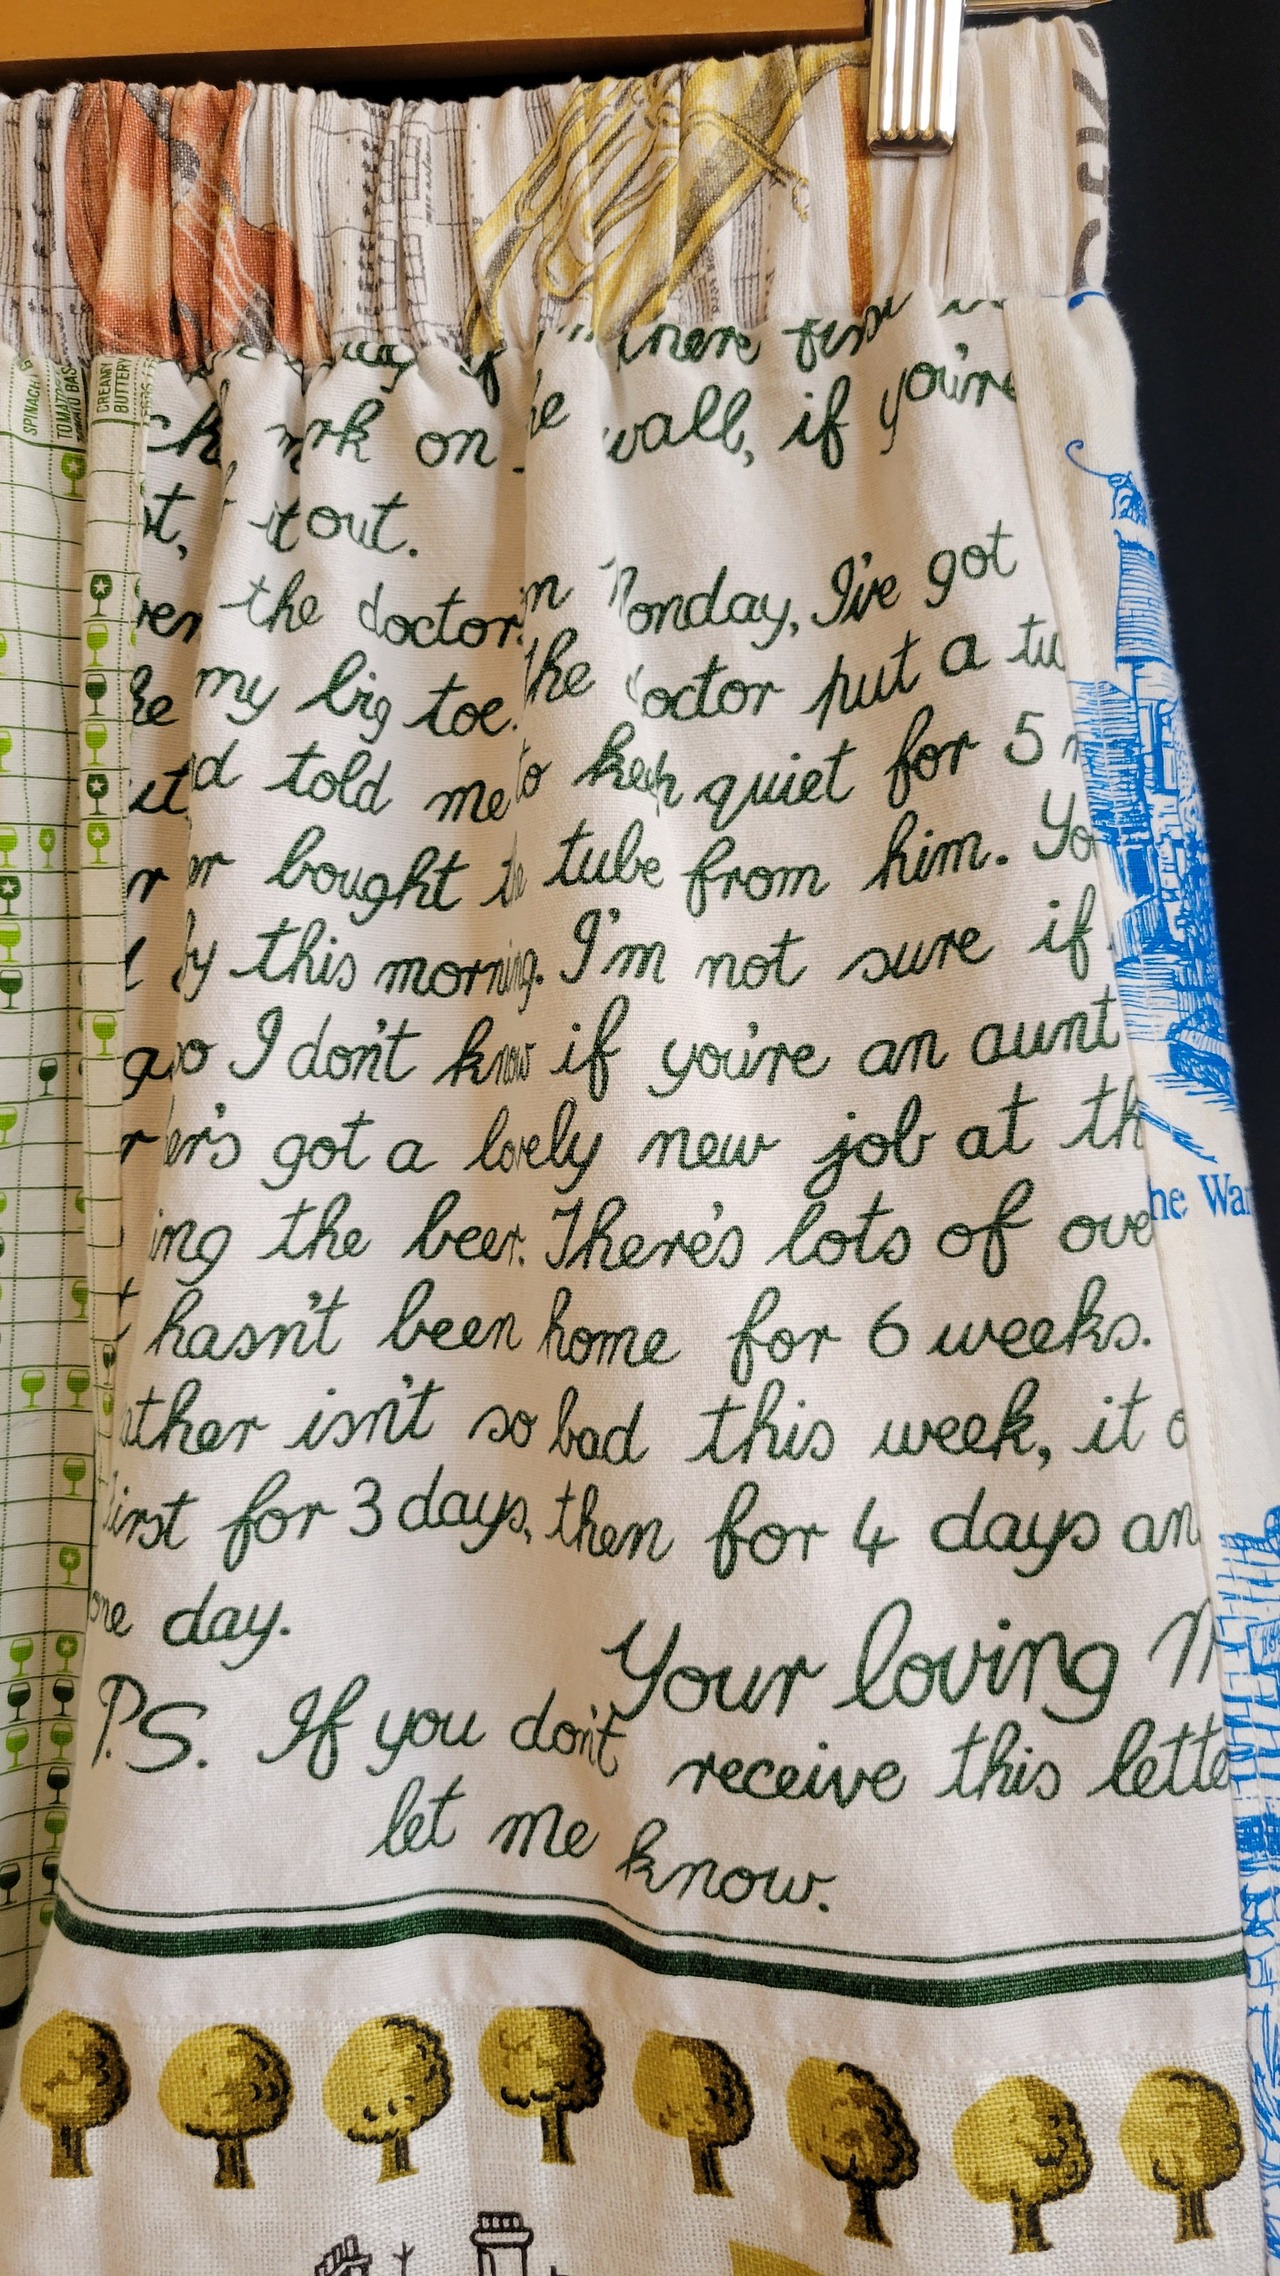 SPINACH &
TOMATO BAS
CREAMY
BUTTERY
there first
on wall, if you're
it out.
the doctor Monday, I've got
my big toe. the doctor put a tu
told me to keep quiet for 5
bought the tube from him. Yo
by this morning. I'm not sure if
so I don't know if you're an aunt
er's got a lovely new job at th
ing the beer. There's lots of ove
he Wa
hasn't been home for 6 weeks.
ather isn't so bad this week, it
first for 3 days, then for 4 days an
one day.
Your loving M
P.S. If you don't receive this lette
let me know.